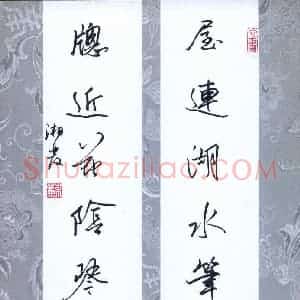 屋連湖水筆
牕近花陰琴
Shufaziliao.com